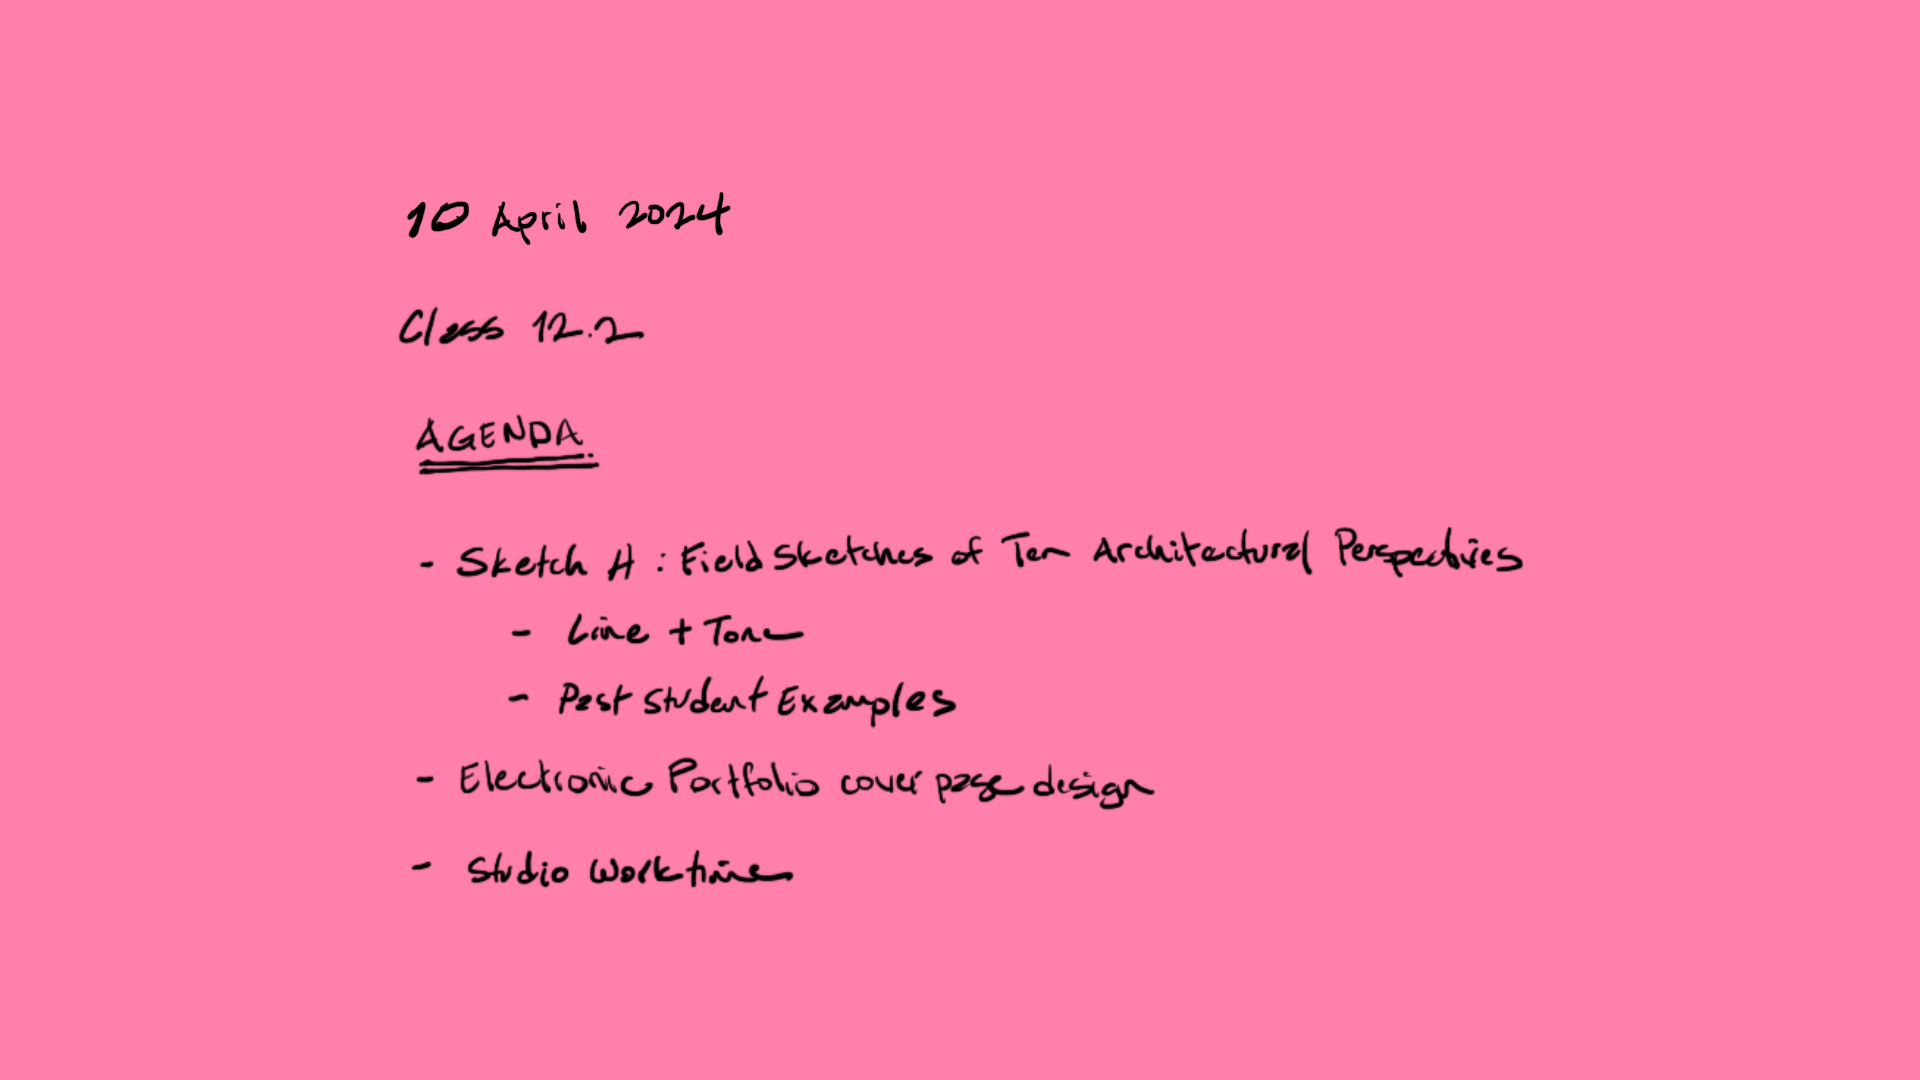 10 April 2024
Class 12.2
AGENDA
- Sketch H : Field Sketches of Ten Architectural Perspectives
- Line + Tone
- Past Student Examples
- Electronic Portfolio cover page design
- Studio Worktime